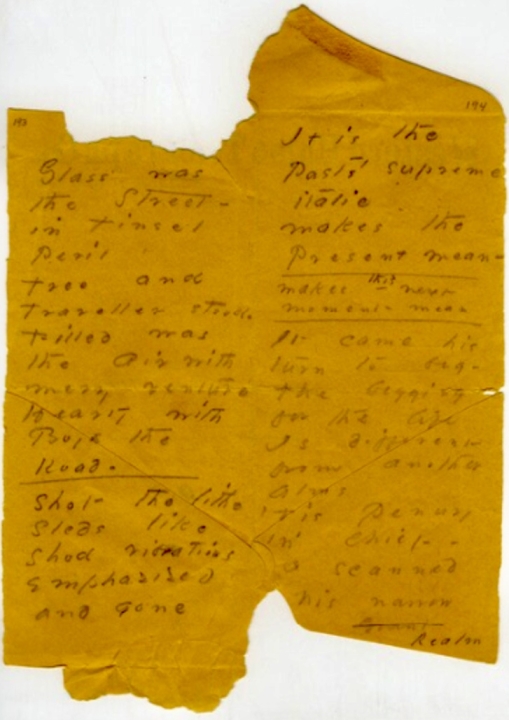 193
Glass was
the Street -
in tinsel
Peril
Tree and
Traveller stood.
Filled was
the Air with
merry venture
Hearty with
Boys the
Road.
Shot the lithe
Sleds like
Shod vibrations
emphasized
and gone
194
It is the
Past's supreme
italic
makes the
Present mean -
makes this new
moment mean
It came his
turn to beg -
the begging
for the life
Is different
from another
Alms
'tis Penury
in Chief -
I scanned
his narrow
Realm